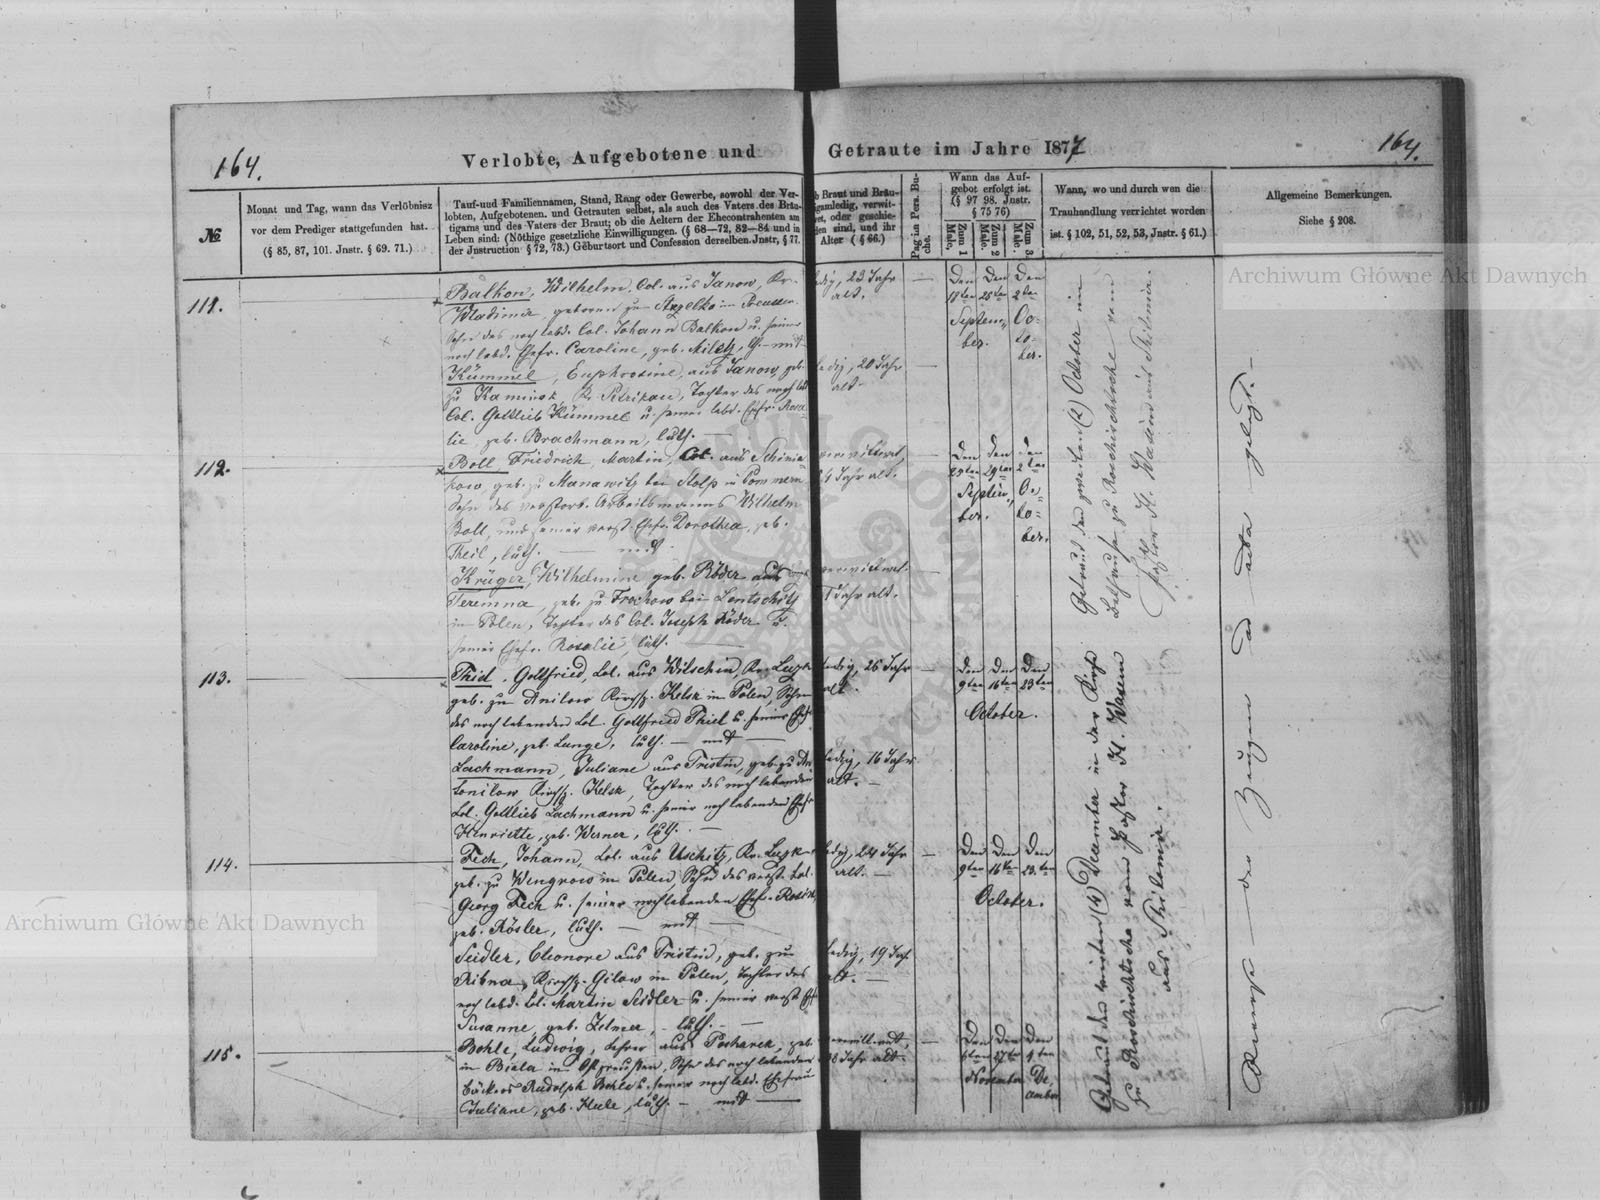 164.
Verlobte, Aufgebotene und Getraute im Jahre 1877
164.
№
Monat und Tag, wann das Verlöbnisz
vor dem Prediger stattgefunden hat.
(§ 85, 87, 101. Jnstr. § 69. 71.)
Tauf-und Familiennamen, Stand, Rang oder Gewerbe, sowohl der Ver-
lobten, Aufgebotenen. und Getrauten selbst, als auch des Vaters des Bräu-
tigams und des Vaters der Braut; ob die Aeltern der Ehecontrahenten am
Leben sind: (Nöthige gesetzliche Einwilligungen. (§ 68—72, 82—84 und in
der Jnstruction § 72, 73.) Geburtsort und Confession derselben. Jnstr, § 77.
Braut und Bräu-
tigam ledig, verwit-
wet, oder geschie-
den sind, und ihr
Alter ( § 66.)
Pag im Pers. Bu-
che.
Wann das Auf-
gebot erfolgt ist.
(§ 97 98. Jnstr.
§ 75 76)
Zum 1 Male.
Zum 2 Male.
Zum 3 Male.
Wann, wo und durch wen die
Trauhandlung verrichtet worden
ist. § 102, 51, 52, 53, Jnstr. § 61.)
Allgemeine Bemerkungen.
Siehe § 208.
111.
Balkow, Wilhelm, Col. aus Janow, Kr.
Wladimir, geboren zu in Preussen
Sohn des noch lebd. Col. Johann Balkow u. seiner
noch lebd. Ehefr. Caroline, geb. Milck, - mit
Kümmel, Euphrosine, aus Janow, geb.
zu Kaminsk, Kr. Petrikau, Tochter des noch lebd
Col. Gottlieb Kümmel u. seiner lebd. Ehefr. Rosa-
lie, geb. Brachmann, luth. —
ledig, 23 Jahr
alt.
ledig, 20 Jahr
alt.
Den Den Den
18ten 25ten 2ten
Septem- Oc-
ber. to-
ber.
112.
Boll, Friedrich, Martin, Col. aus
geb. zu bei Stolp in Pommern
Sohn des verstorb. Arbeitsmanns Wilhelm
Boll, und seiner verst. Ehefr. Dorothea, geb.
Theil, luth. — mit
Krüger, Wilhelmine geb. Röder aus
Teremna, geb. zu bei Lentschitz
in Polen, Tochter des Col. Joseph Röder u.
seiner Ehefr. Rosalie, luth.
verwittwet,
Jahr alt.
verwittwet
Jahr alt.
Den den den
25ten 29ten 2ten
Septem- Oc-
ber. to-
ber.
Getraut den zweiten (2) October im
Bethause zu Roschischtsche vom
Pastor H. Wasem aus Shitomir.
113.
Thiel, Gottfried, Col. aus Wilschin, Kr. Luzk
geb. zu Kirchsp. Kelsk in Polen, Sohn
des noch lebenden Col. Gottfried Thiel u. seiner Ehefr
Caroline, geb. Lange, luth. — mit —
Lachmann, Juliane aus Tristin, geb. zu
Kirchsp. Kelsk, Tochter des noch lebenden
Col. Gottlieb Lachmann u. seiner noch lebenden Ehefr
Henriette, geb. Werner, luth. —
ledig, 26 Jahr
alt.
ledig, 16 Jahr
alt. —
Den Den Den
9ten 16ten 23ten
October.
114.
Fech, Johann, Col. aus Uschitz, Kr. Luzk
geb. zu Wengrow in Polen, Sohn des verst. Col.
Georg Fech u. seiner noch lebenden Ehefr. Rosine,
geb. Rösler, luth. — mit —
Seidler, Eleonore aus Tristin, geb. zu
Ribna, Kirchsp. Gilow in Polen, Tochter des
noch lebd. Col. Martin Seidler u. seiner verst. Ehefr
Susanne, geb. Zelmer, - luth. —
ledig, 24 Jahr
alt. —
ledig, 19 Jahr
alt. —
Den Den Den
9ten 16ten 23.ten
October.
115.
Bohle, Ludwig, Lehrer aus geb.
in Biala in Ostpreußen, Sohn des noch lebenden
Bäckers Rudolph Bohle u. seiner noch lebd. Ehefrau
Juliane, geb. luth. — mit —
verwittwet,
Jahr alt.
Den Den Den
27ten 4ten
November De-
cember
Getraut den vierten (4) December in der Kirche
zu Roschischtsche vom Pastor H. Wasem
aus Shitomir.
der Zeugen ad acta gelegt. —
Archiwum Główne Akt Dawnych
Archiwum Główne Akt Dawnych